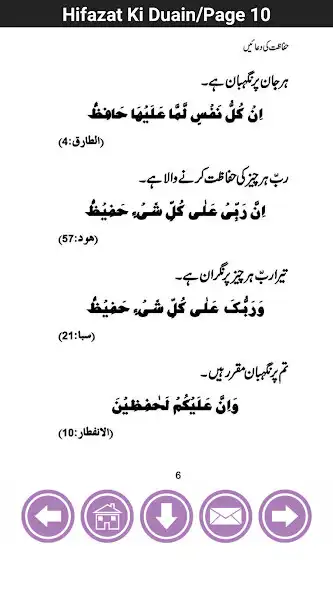 Hifazat Ki Duain/Page 10
حفاظت کی دعائیں
ہر جان پر نگہبان ہے۔
اِنْ کُلُّ نَفْسٍ لَّمَّا عَلَیْهَا حَافِظٌ
(الطارق:4)
ربّ ہر چیز کی حفاظت کرنے والا ہے۔
اِنَّ رَبِّیْ عَلٰی کُلِّ شَیْءٍ حَفِیْظٌ
(هود:57)
تیرا ربّ ہر چیز پر نگران ہے۔
وَرَبُّکَ عَلٰی کُلِّ شَیْءٍ حَفِیْظٌ
(سبا:21)
تم پر نگہبان مقرر ہیں۔
وَاِنَّ عَلَیْکُمْ لَحٰفِظِیْنَ
(الانفطار:10)
6